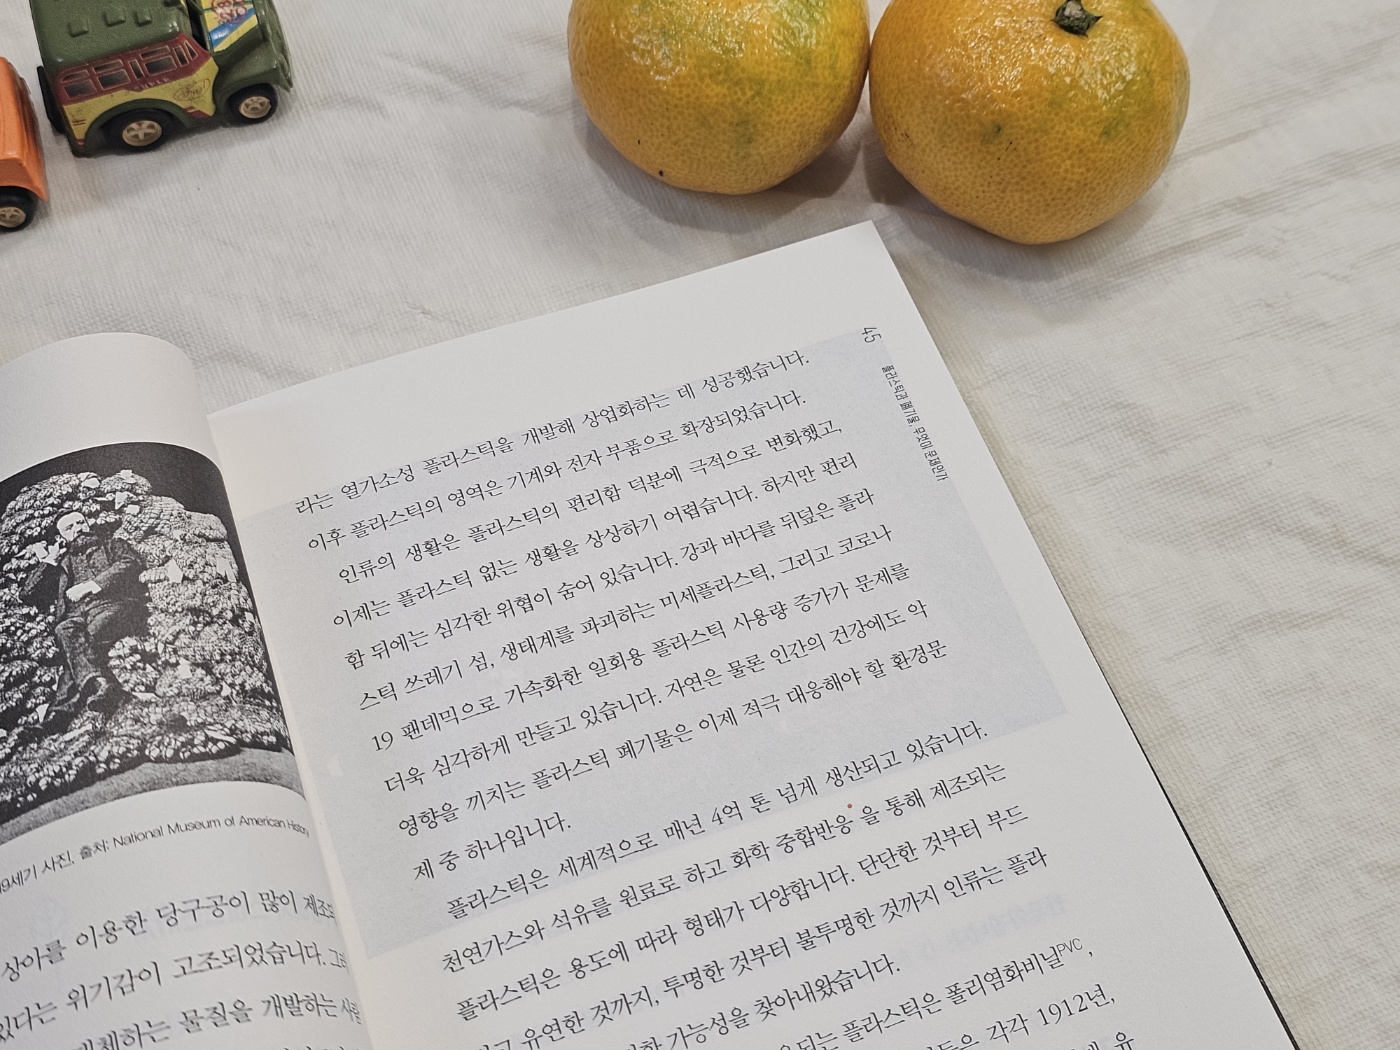 19세기 사진. 출처: National Museum of American History
상아를 이용한 당구공이 많이 제조되
있다는 위기감이 고조되었습니다. 그래
대체하는 물질을 개발하는 사람
45
플라스틱과 폐기물, 무엇이 문제인가
라는 열가소성 플라스틱을 개발해 상업화하는 데 성공했습니다.
이후 플라스틱의 영역은 기계와 전자 부품으로 확장되었습니다.
인류의 생활은 플라스틱의 편리함 덕분에 극적으로 변화했고,
이제는 플라스틱 없는 생활을 상상하기 어렵습니다. 하지만 편리
함 뒤에는 심각한 위협이 숨어 있습니다. 강과 바다를 뒤덮은 플라
스틱 쓰레기 섬, 생태계를 파괴하는 미세플라스틱, 그리고 코로나
19 팬데믹으로 가속화한 일회용 플라스틱 사용량 증가가 문제를
더욱 심각하게 만들고 있습니다. 자연은 물론 인간의 건강에도 악
영향을 끼치는 플라스틱 폐기물은 이제 적극 대응해야 할 환경문
제 중 하나입니다.
플라스틱은 세계적으로 매년 4억 톤 넘게 생산되고 있습니다.
천연가스와 석유를 원료로 하고 화학 중합반응을 통해 제조되는
플라스틱은 용도에 따라 형태가 다양합니다. 단단한 것부터 부드
럽고 유연한 것까지, 투명한 것부터 불투명한 것까지 인류는 플라
가능성을 찾아내왔습니다.
플라스틱은 폴리염화비닐PVC,
각각 1912년,